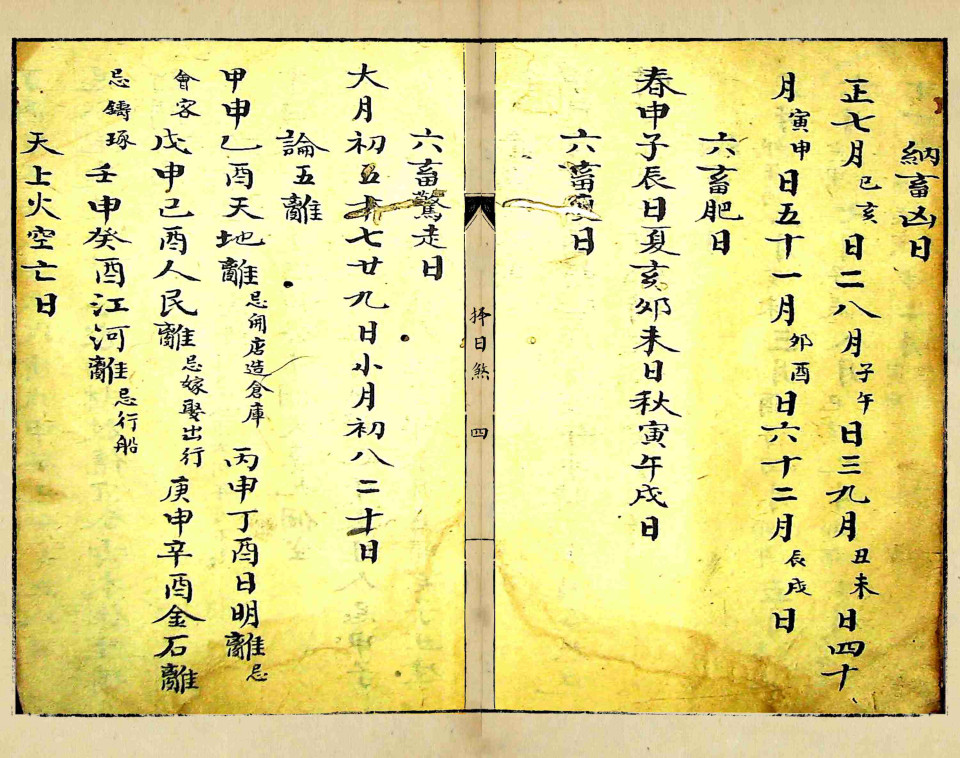 納畜凶日
正七月巳亥日二八月子午日三九月丑未日四十
月寅申日五十一月卯酉日六十二月辰戌日
六畜肥日
春申子辰日夏亥卯未日秋寅午戌日
六畜日
擇日煞 四
六畜驚走日
大月初五 七廿九日小月初八二十日
論五離
甲申乙酉天地離忌開店造倉庫 丙申丁酉日明離忌
會客 戊申己酉人民離忌嫁娶出行 庚申辛酉金石離
忌鑄琢 壬申癸酉江河離忌行船
天上火空亡日